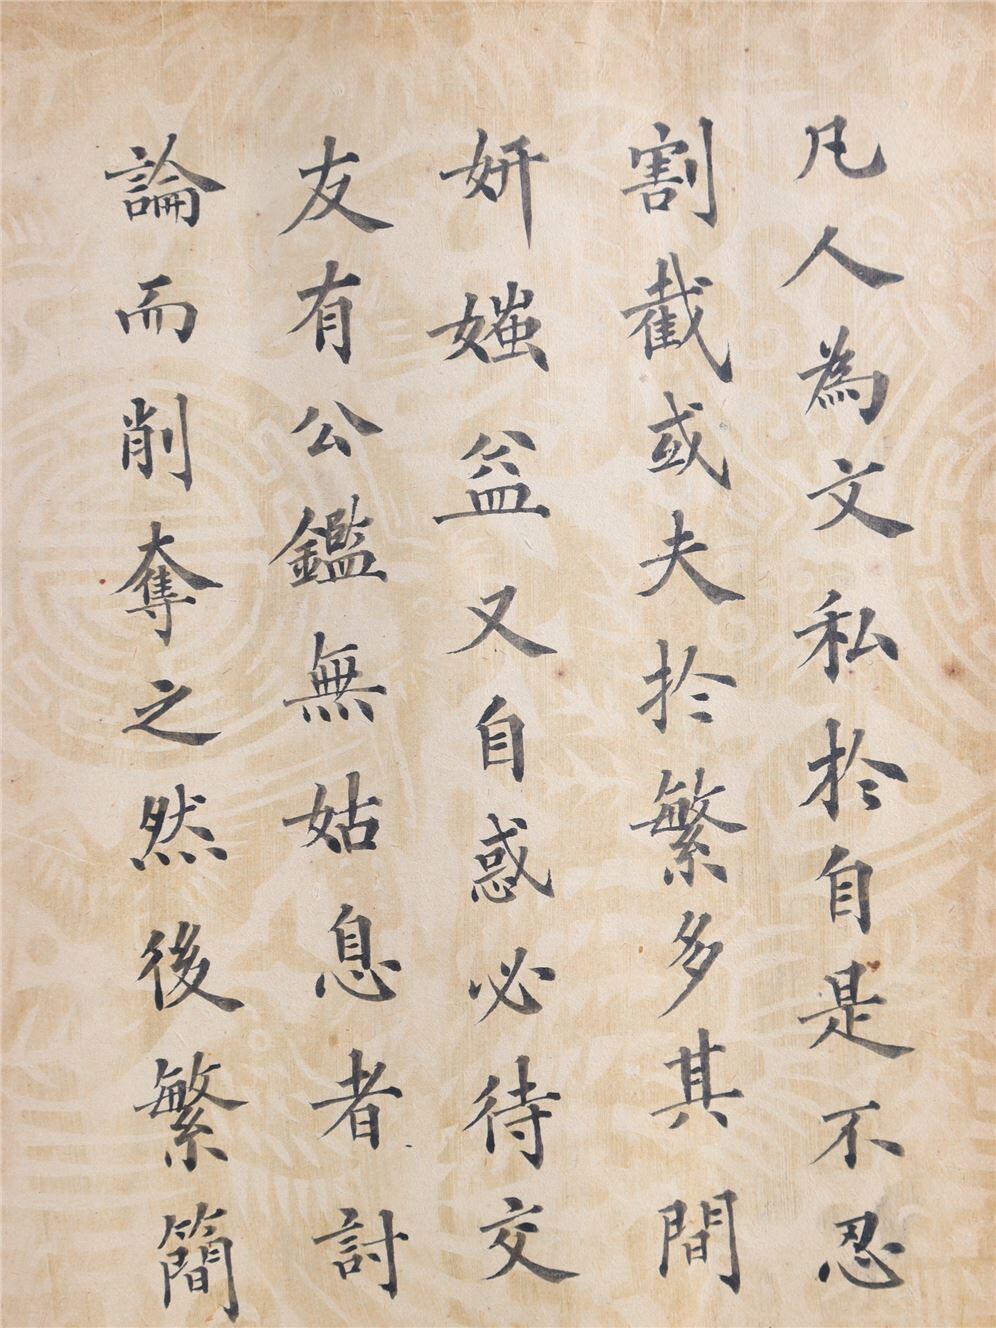 凡人為文私於自是不忍
割截或夫於繁多其間
妍媸益又自惑必待交
友有公鑑無姑息者討
論而削奪之然後繁簡